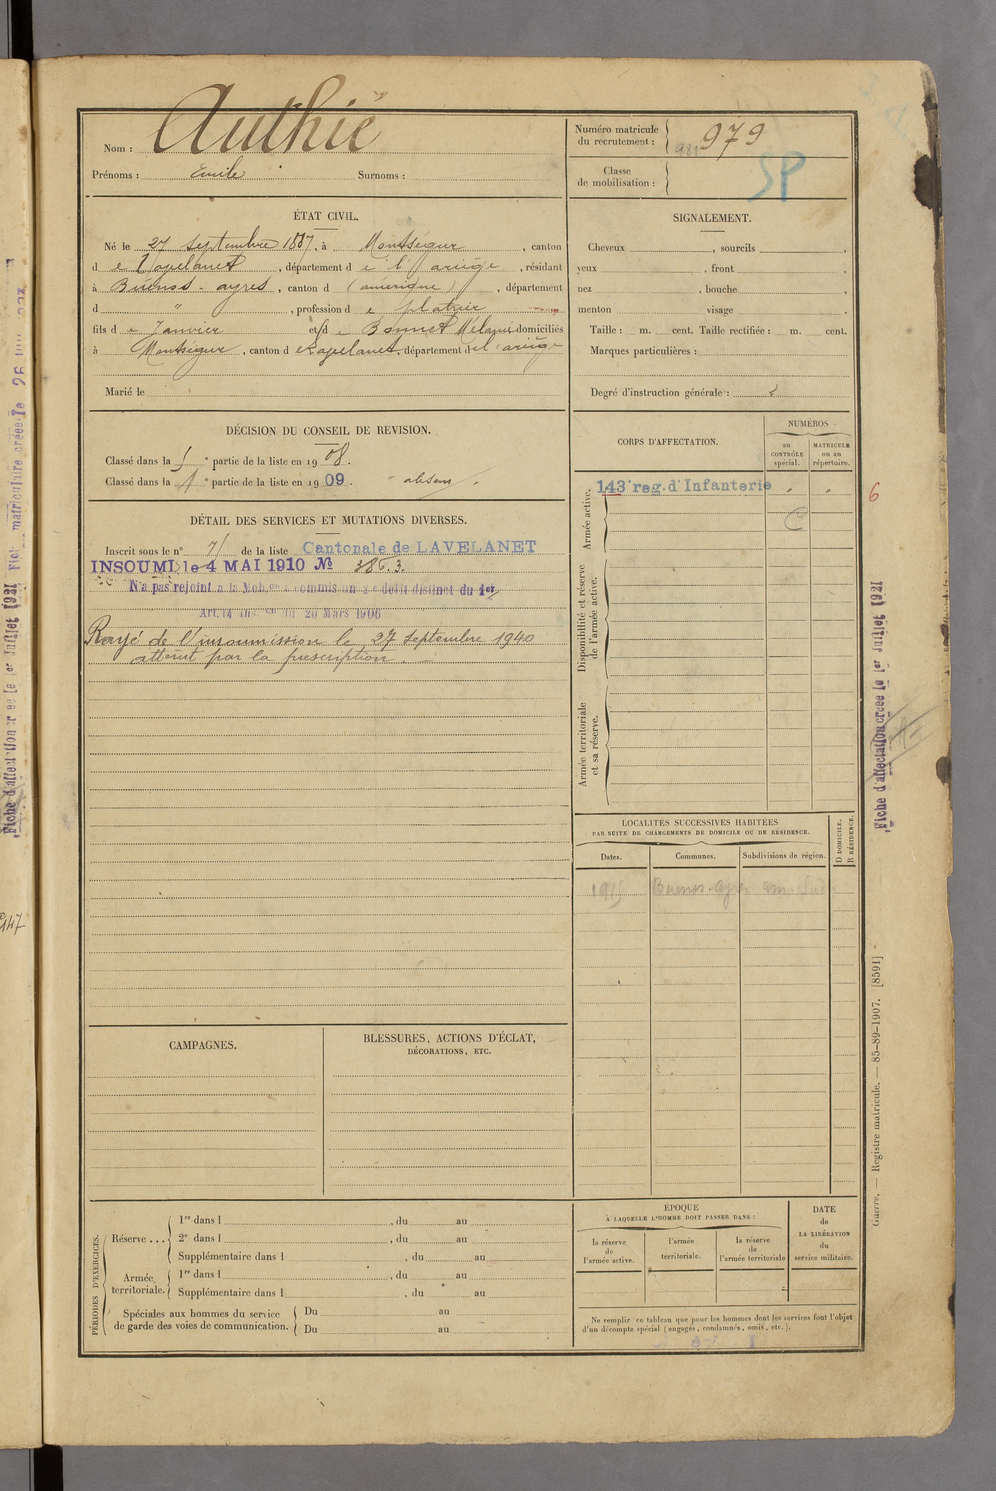 Nom : Authié
Prénoms : Emile Surnoms :
Numéro matricule
du recrutement : 981 979
Classe
de mobilisation :
SP
ÉTAT CIVIL.
Né le 27 septembre 1887, à Montségur, canton
de Lavelanet, département de l'ariège, résidant
à Buenos-ayres, canton d (amérique), département
d " , profession de platrier
fils de Janvier et de Bonnet Mélanie domiciliés
à Montségur, canton de Lavelanet, département de l'ariège
Marié le
SIGNALEMENT.
Cheveux , sourcils ,
yeux , front ,
nez , bouche
menton visage .
Taille : m. cent. Taille rectifiée : m. cent.
Marques particulières :
Degré d'instruction générale : 2
DÉCISION DU CONSEIL DE REVISION.
Classé dans la ° partie de la liste en 1908.
Classé dans la 1° partie de la liste en 1909. - absent.
DÉTAIL DES SERVICES ET MUTATIONS DIVERSES.
Inscrit sous le n° 71 de la liste Cantonale de LAVELANET
INSOUMIS le 4 MAI 1910 No 386.3.
N'a pas rejoint à la Mob. commis un délit distinct du 1er
Art. 14 du 20 Mars 1906
Rayé de l'insoumission le 27 septembre 1940
atteint par la prescription.
CORPS D'AFFECTATION.
NUMÉROS
au
CONTRÔLE
spécial.
MATRICULE
ou au
répertoire.
Armée active.
143e reg. d'Infanterie
C
6
Disponibilité et réserve
de l'armée active.
Armée territoriale
et sa réserve.
LOCALITÉS SUCCESSIVES HABITÉES
PAR SUITE DE CHANGEMENTS DE DOMICILE OU DE RÉSIDENCE.
D DOMICILE.
R RÉSIDENCE.
Dates. Communes. Subdivisions de région.
1915 Buenos-Ayres am. Sud
CAMPAGNES.
BLESSURES, ACTIONS D'ÉCLAT,
DÉCORATIONS, ETC.
PÉRIODES D'EXERCICES.
Réserve ...
1re dans l , du au
2e dans l , du au
Supplémentaire dans l , du au
Armée
territoriale.
1re dans l , du au
Supplémentaire dans l , du au
Spéciales aux hommes du service
de garde des voies de communication.
Du au
Du au
ÉPOQUE
À LAQUELLE L'HOMME DOIT PASSER DANS :
la réserve
de
l'armée active.
l'armée
territoriale.
la réserve
de
l'armée territoriale
DATE
de
LA LIBÉRATION
du
service militaire.
Ne remplir ce tableau que pour les hommes dont les services font l'objet
d'un décompte spécial (engagés, condamnés, omis, etc.).
Fiche d'affectation créée le 1er Juillet 1921
Guerre. — Registre matricule. — 85-89-1907. [8591]
Fiche d'affectation créée le 1er Juillet 1921
Fiche matriculaire créée le
147